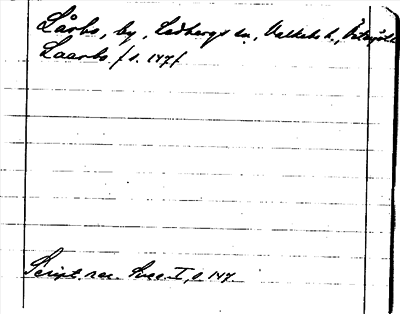 Lårbo, by, Ledbergs sn, Valkebo h., Östergötl
Laarbo /s. 147/
Script. rer. Svec. I, s. 147.